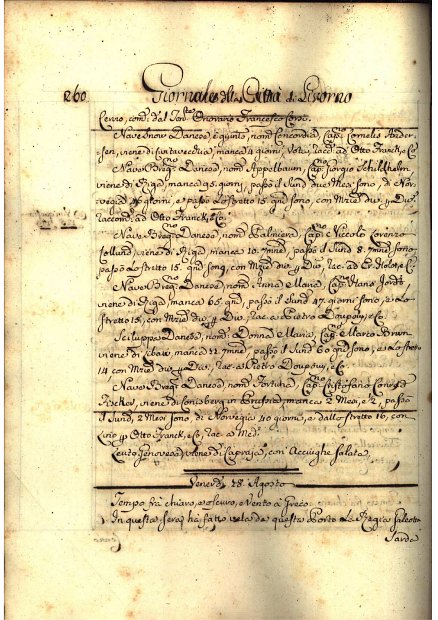 260. Giornale della Città di Livorno
Cerrio, com: dal Ten:te Onorario Francesco Corsi.
Nave Snow Danese è giunto, nom: Concordia, Cap:no Cornelis Ander-
sen, viene di Civitavecchia, manca 4 giorni, Voto, racc: ad Otto Franck, e C:
Nave Brig: Danese, nom: Appelbaum, Cap:no Giorgio Schildhelm
viene di Riga, manca 95 giorni, passò il Sund due Mesi sono, di Nor-
vegia 46 giorni, e passò lo stretto 15. gni sono, con Mrzie div: p Div:
raccom: ad Otto Franck, e C:
Nave Brig: Danese, nom: Cap:no Niccolò Lorenzo
viene di Riga, manca 10. mne, passò il Sund 8. mne sono
passò lo stretto 15. gni sono, con Mrzie div: p Div: rac: ad e C:
Nave Brig: Danese, nom: Anna Maria, Cap:no Hans
viene di Riga, manca 65 gni, passò il Sund 47. giorni sono, e lo
stretto 15, con Mrzie div: p Div: rac: a Pietro Doupouy, e C:
Sciluppo Danese, nom: Donna Maria, Cap:no Marco Brun
viene di manca 12. mne, passò il Sund 60 gni sono, e lo stretto
14, con Mrzie div: p Div: rac: a Pietro Doupouy, e C:
Nave Brig: Danese, nom: Fortuna, Cap:no Cristofano Conrad
Fischer, viene di Conisberg in Prussia, manca 2 Mesi, e 2, passò
il Sund, 2 Mesi sono, di Norvegia 40 giorni, e dallo stretto 16, con
Lino p Otto Franck, e C: rac: a Med:
Leuto Genovese, viene di Capraja, con Acciughe salate
Venerdì 28. Agosto
Tempo frà chiaro, e oscuro, e Vento à Greco
In questa sera hà fatto vela da questo Porto la Regia Galeotta
Sarda